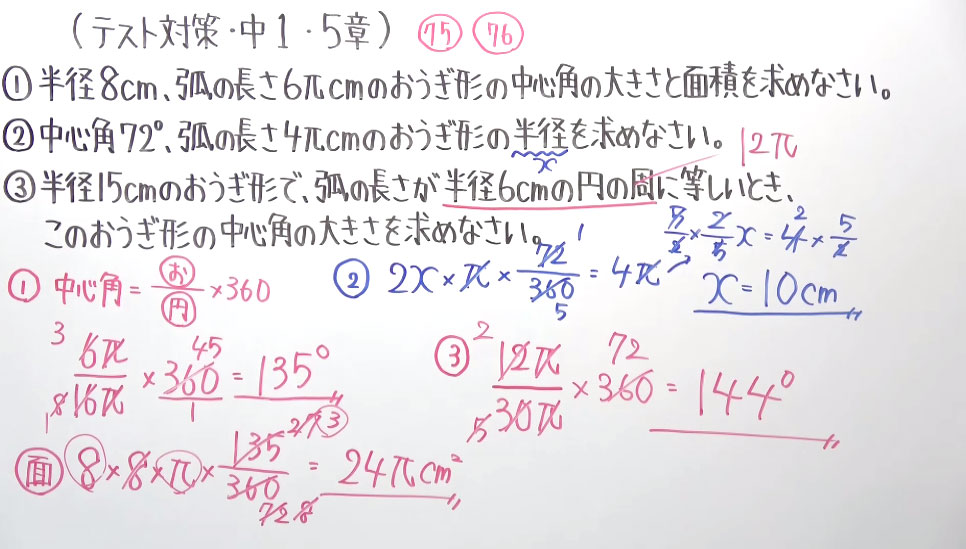 （テスト対策・中1・5章） 75 76
①半径8cm、弧の長さ6πcmのおうぎ形の中心角の大きさと面積を求めなさい。
②中心角72°、弧の長さ4πcmのおうぎ形の半径を求めなさい。
x
12π
③半径15cmのおうぎ形で、弧の長さが半径6cmの円の周に等しいとき、
このおうぎ形の中心角の大きさを求めなさい。
① 中心角=お/円×360
3 6π/16π 8 1 ×360 45/1 =135°
面 8×8×π×135/360 27 3 72 8 =24πcm²
② 2x×π×72/360 1 5 =4π
5/2×2/5x=4×5/2 2
x=10cm
③ 2 12π/30π 5 ×360 72 =144°